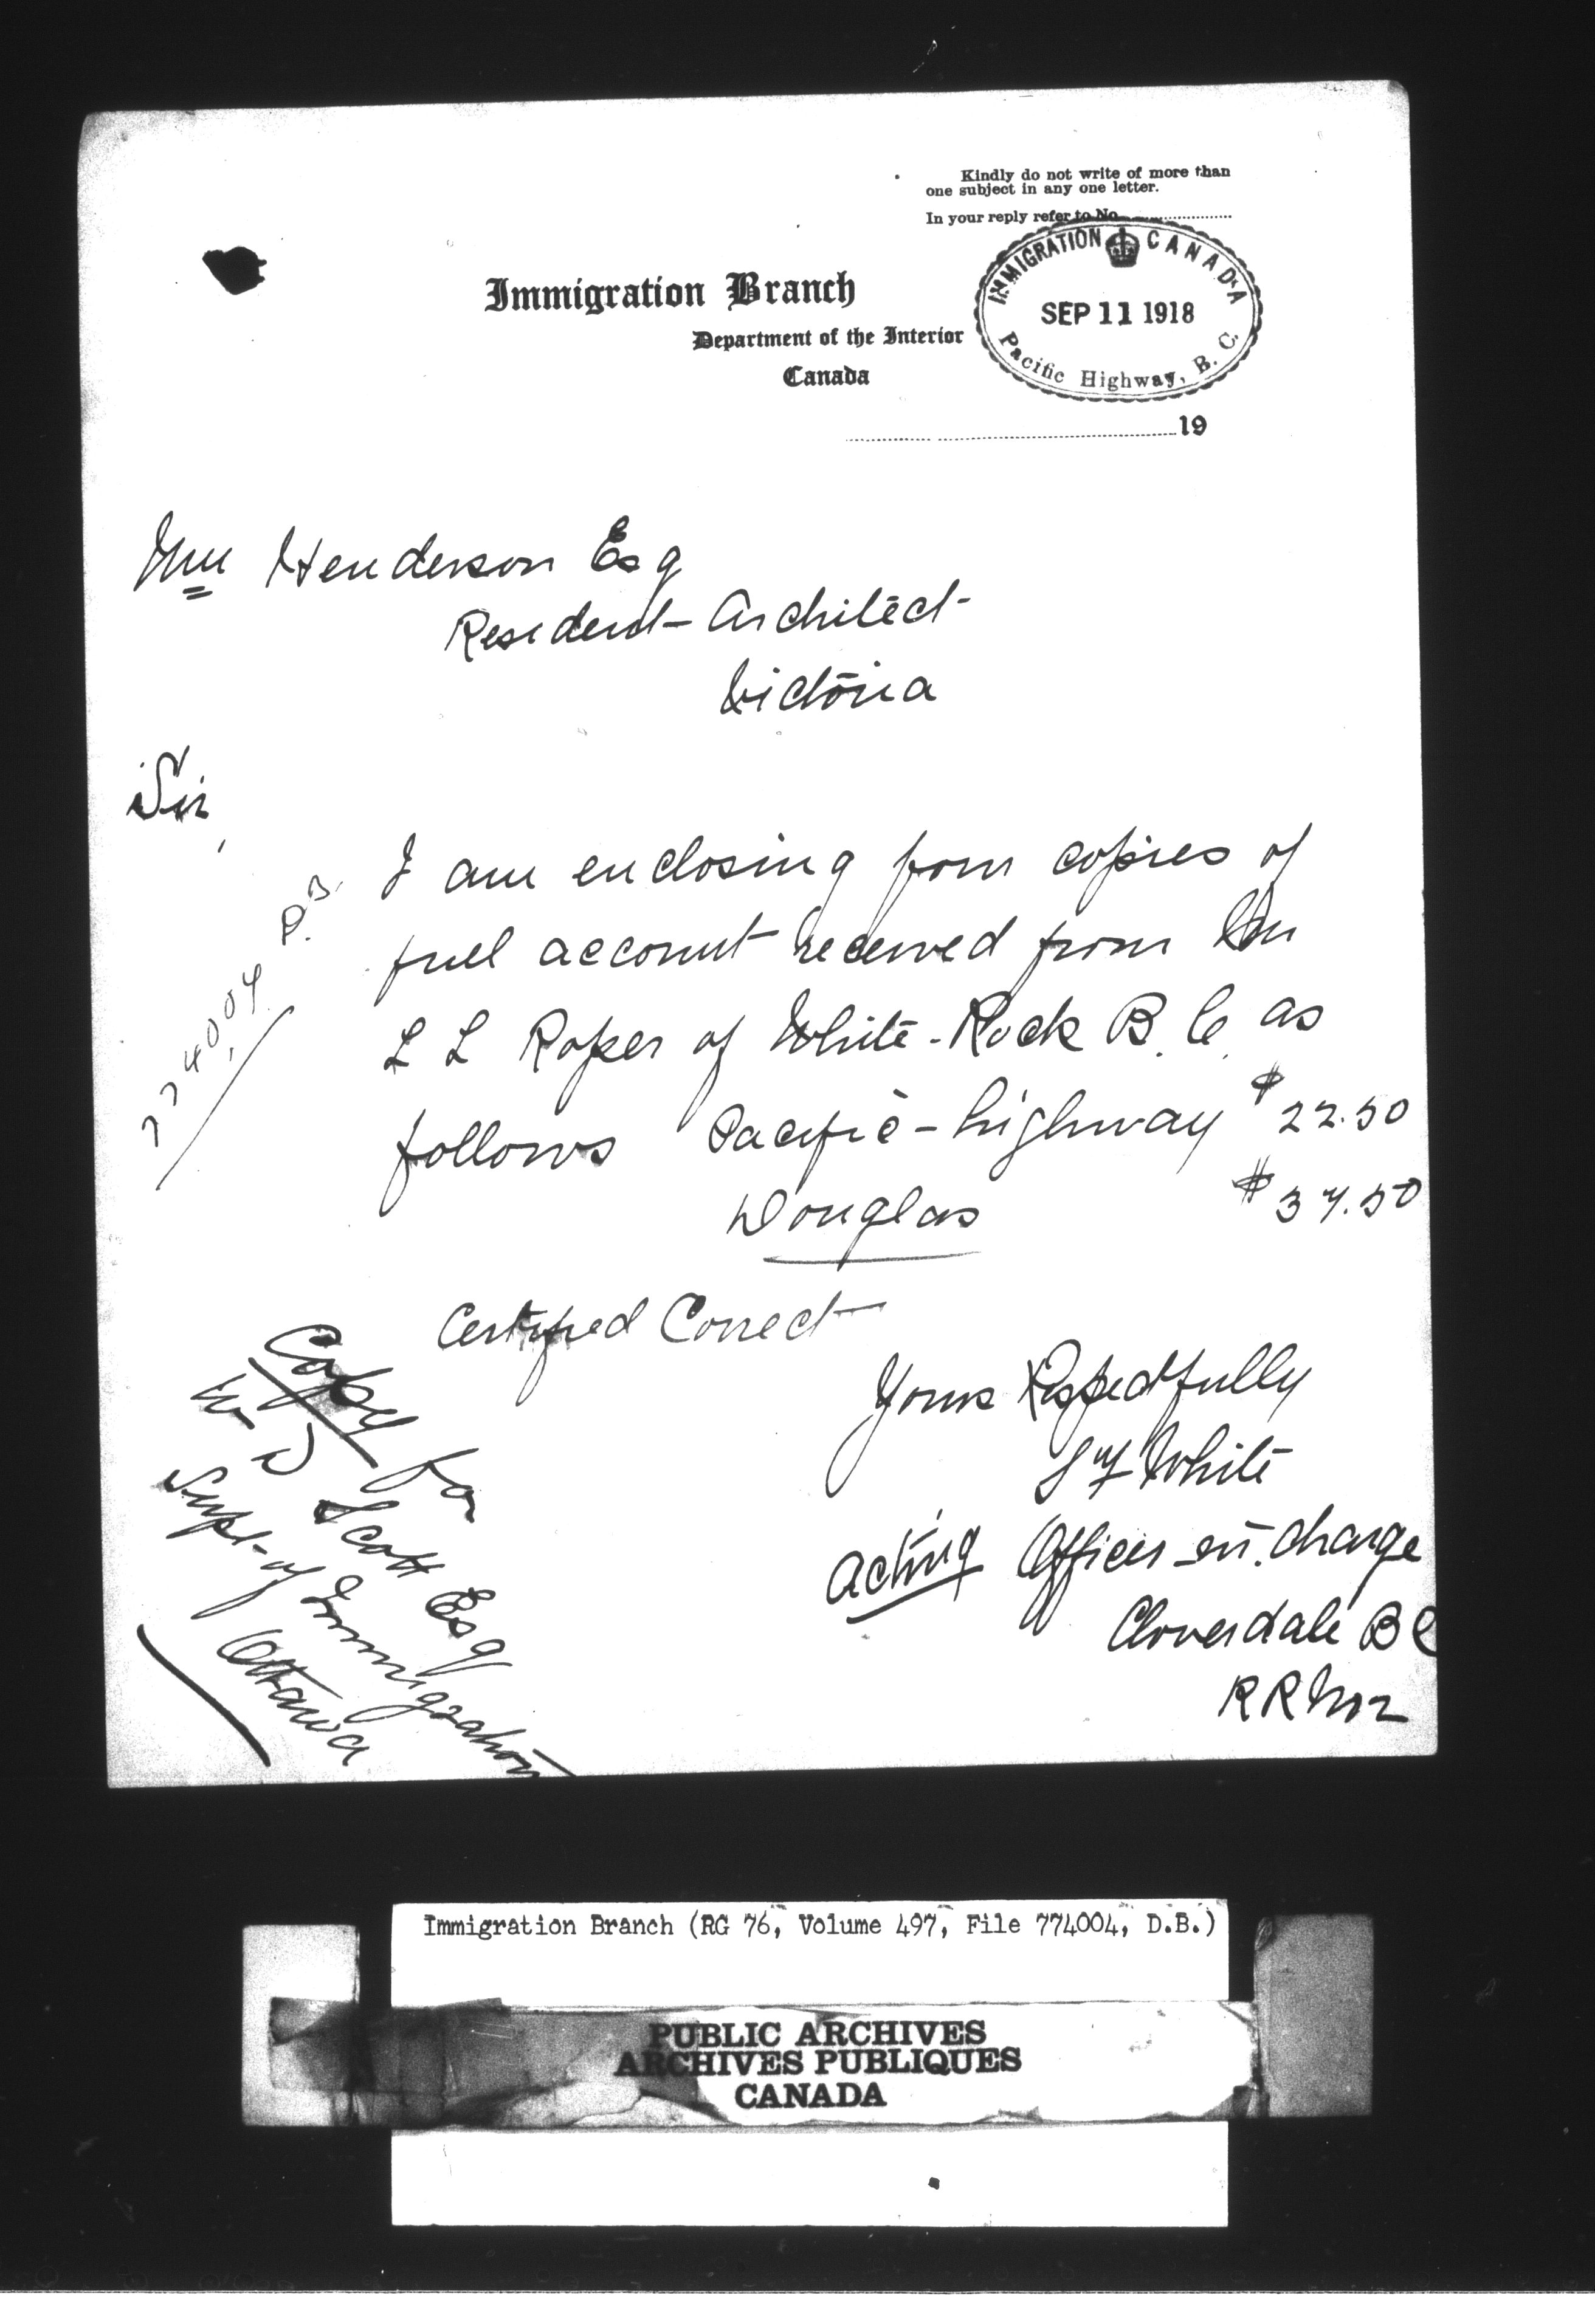 Kindly do not write of more than
one subject in any one letter.
In your reply refer to No.
IMMIGRATION CANADA
SEP 11 1918
Pacific Highway, B. C.
Immigration Branch
Department of the Interior
Canada
19
Wm Henderson Esq
Resident Architect
Victoria
Sir,
I am enclosing four copies of
fuel account received from Mr
L L Roper of White-Rock B.C. as
follows Pacific-highway $22.50
Douglas $37.50
774004
Certified Correct
Yours Respectfully
White
Acting Officer in charge
Cloverdale B C
R R No 2
Copy for
W D Scott Esq
Supt of Immigration
Ottawa
Immigration Branch (RG 76, Volume 497, File 774004, D.B.)
PUBLIC ARCHIVES
ARCHIVES PUBLIQUES
CANADA